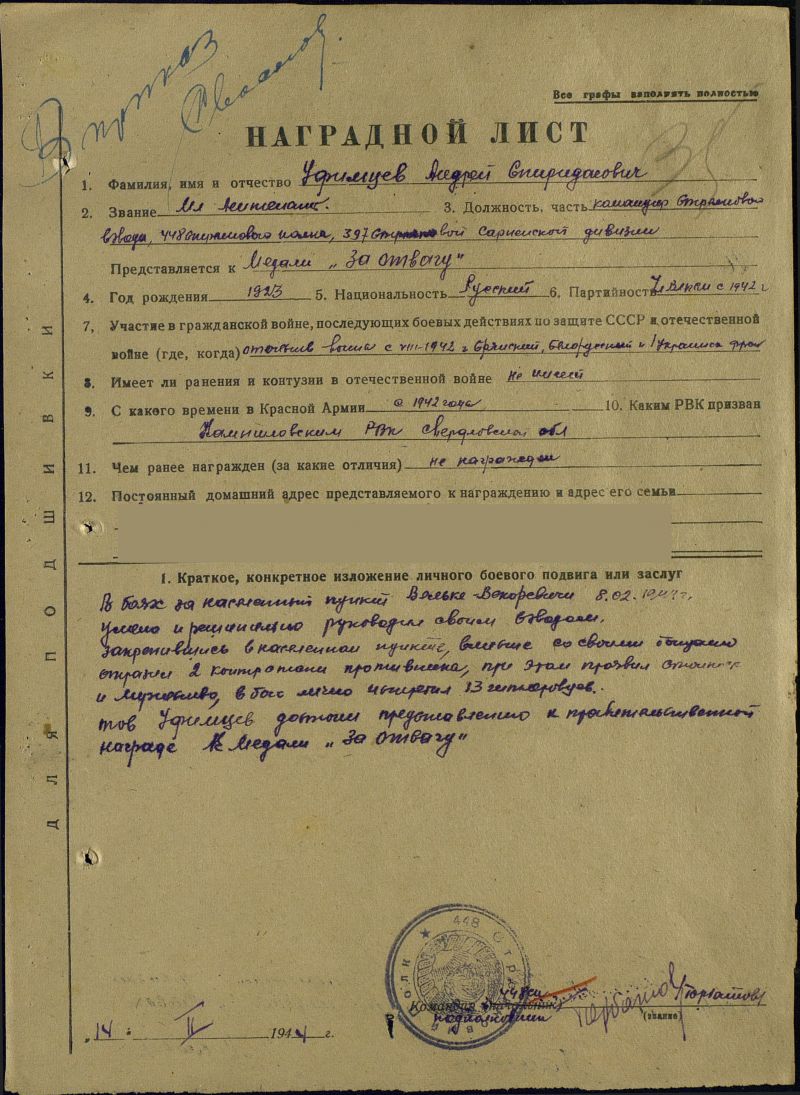 В приказ
Все графы заполнять полностью
НАГРАДНОЙ ЛИСТ
1. Фамилия, имя и отчество Уфимцев Андрей Спиридонович
2. Звание Мл лейтенант. 3. Должность, часть командир стрелкового
взвода, 448 стрелкового полка, 397 стрелковой Сарненской дивизии
Представляется к Медали „За отвагу"
4. Год рождения 1923 5. Национальность Русский 6. Партийность чл ВЛКСМ с 1942 г
7, Участие в гражданской войне, последующих боевых действиях по защите СССР и отечественной
войне (где, когда) отечеств война с VIII-1942 г Брянский, Белорусский и 1 Украинск фрон
8. Имеет ли ранения и контузии в отечественной войне не имеет
9. С какого времени в Красной Армии с 1942 года 10. Каким РВК призван
Камышловским РВК Свердловской обл
11. Чем ранее награжден (за какие отличия) не награжден
12. Постоянный домашний адрес представляемого к награждению и адрес его семьи
1. Краткое, конкретное изложение личного боевого подвига или заслуг
В боях за населенный пункт 8.02.1944 г.
умело и решительно руководил своим взводом.
Закрепившись в населенном пункте, вместе со своими бойцами
отразил 2 контратаки противника, при этом проявил
и мужество, в бою лично истребил 13 гитлеровцев.
тов Уфимцев достоин представлению к правительственной
награде к Медали „За отвагу"
448 Стрелковый полк
448 сп
Командир (начальник)
подполковник
Горбатов
(звание)
„14 " II 1944 г.
ДЛЯ ПОДШИВКИ